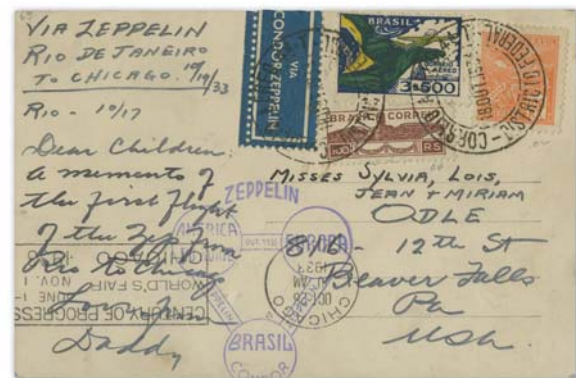 VIA ZEPPELIN
RIO DE JANEIRO
TO CHICAGO. 10/19/33
RIO - 10/17
Dear Children:
a memento of
the first flight
of the Zep from
Rio to Chicago
Love from
Daddy
VIA
CONDOR-ZEPPELIN
BRASIL
CORREIO
AEREO
3$500
BRASIL CORREIO
RS
CORREIO
D. FEDERAL
MISSES SYLVIA, LOIS,
JEAN & MIRIAM
ODLE
816- 12th St
Beaver Falls
Pa
USA
ZEPPELIN
AMERICA
EUROPA
BRASIL
CONDOR
CHICAGO
OCT 26
1933
CENTURY OF PROGRESS
WORLD'S FAIR
JUNE 1-
NOV. 1
CHICAGO